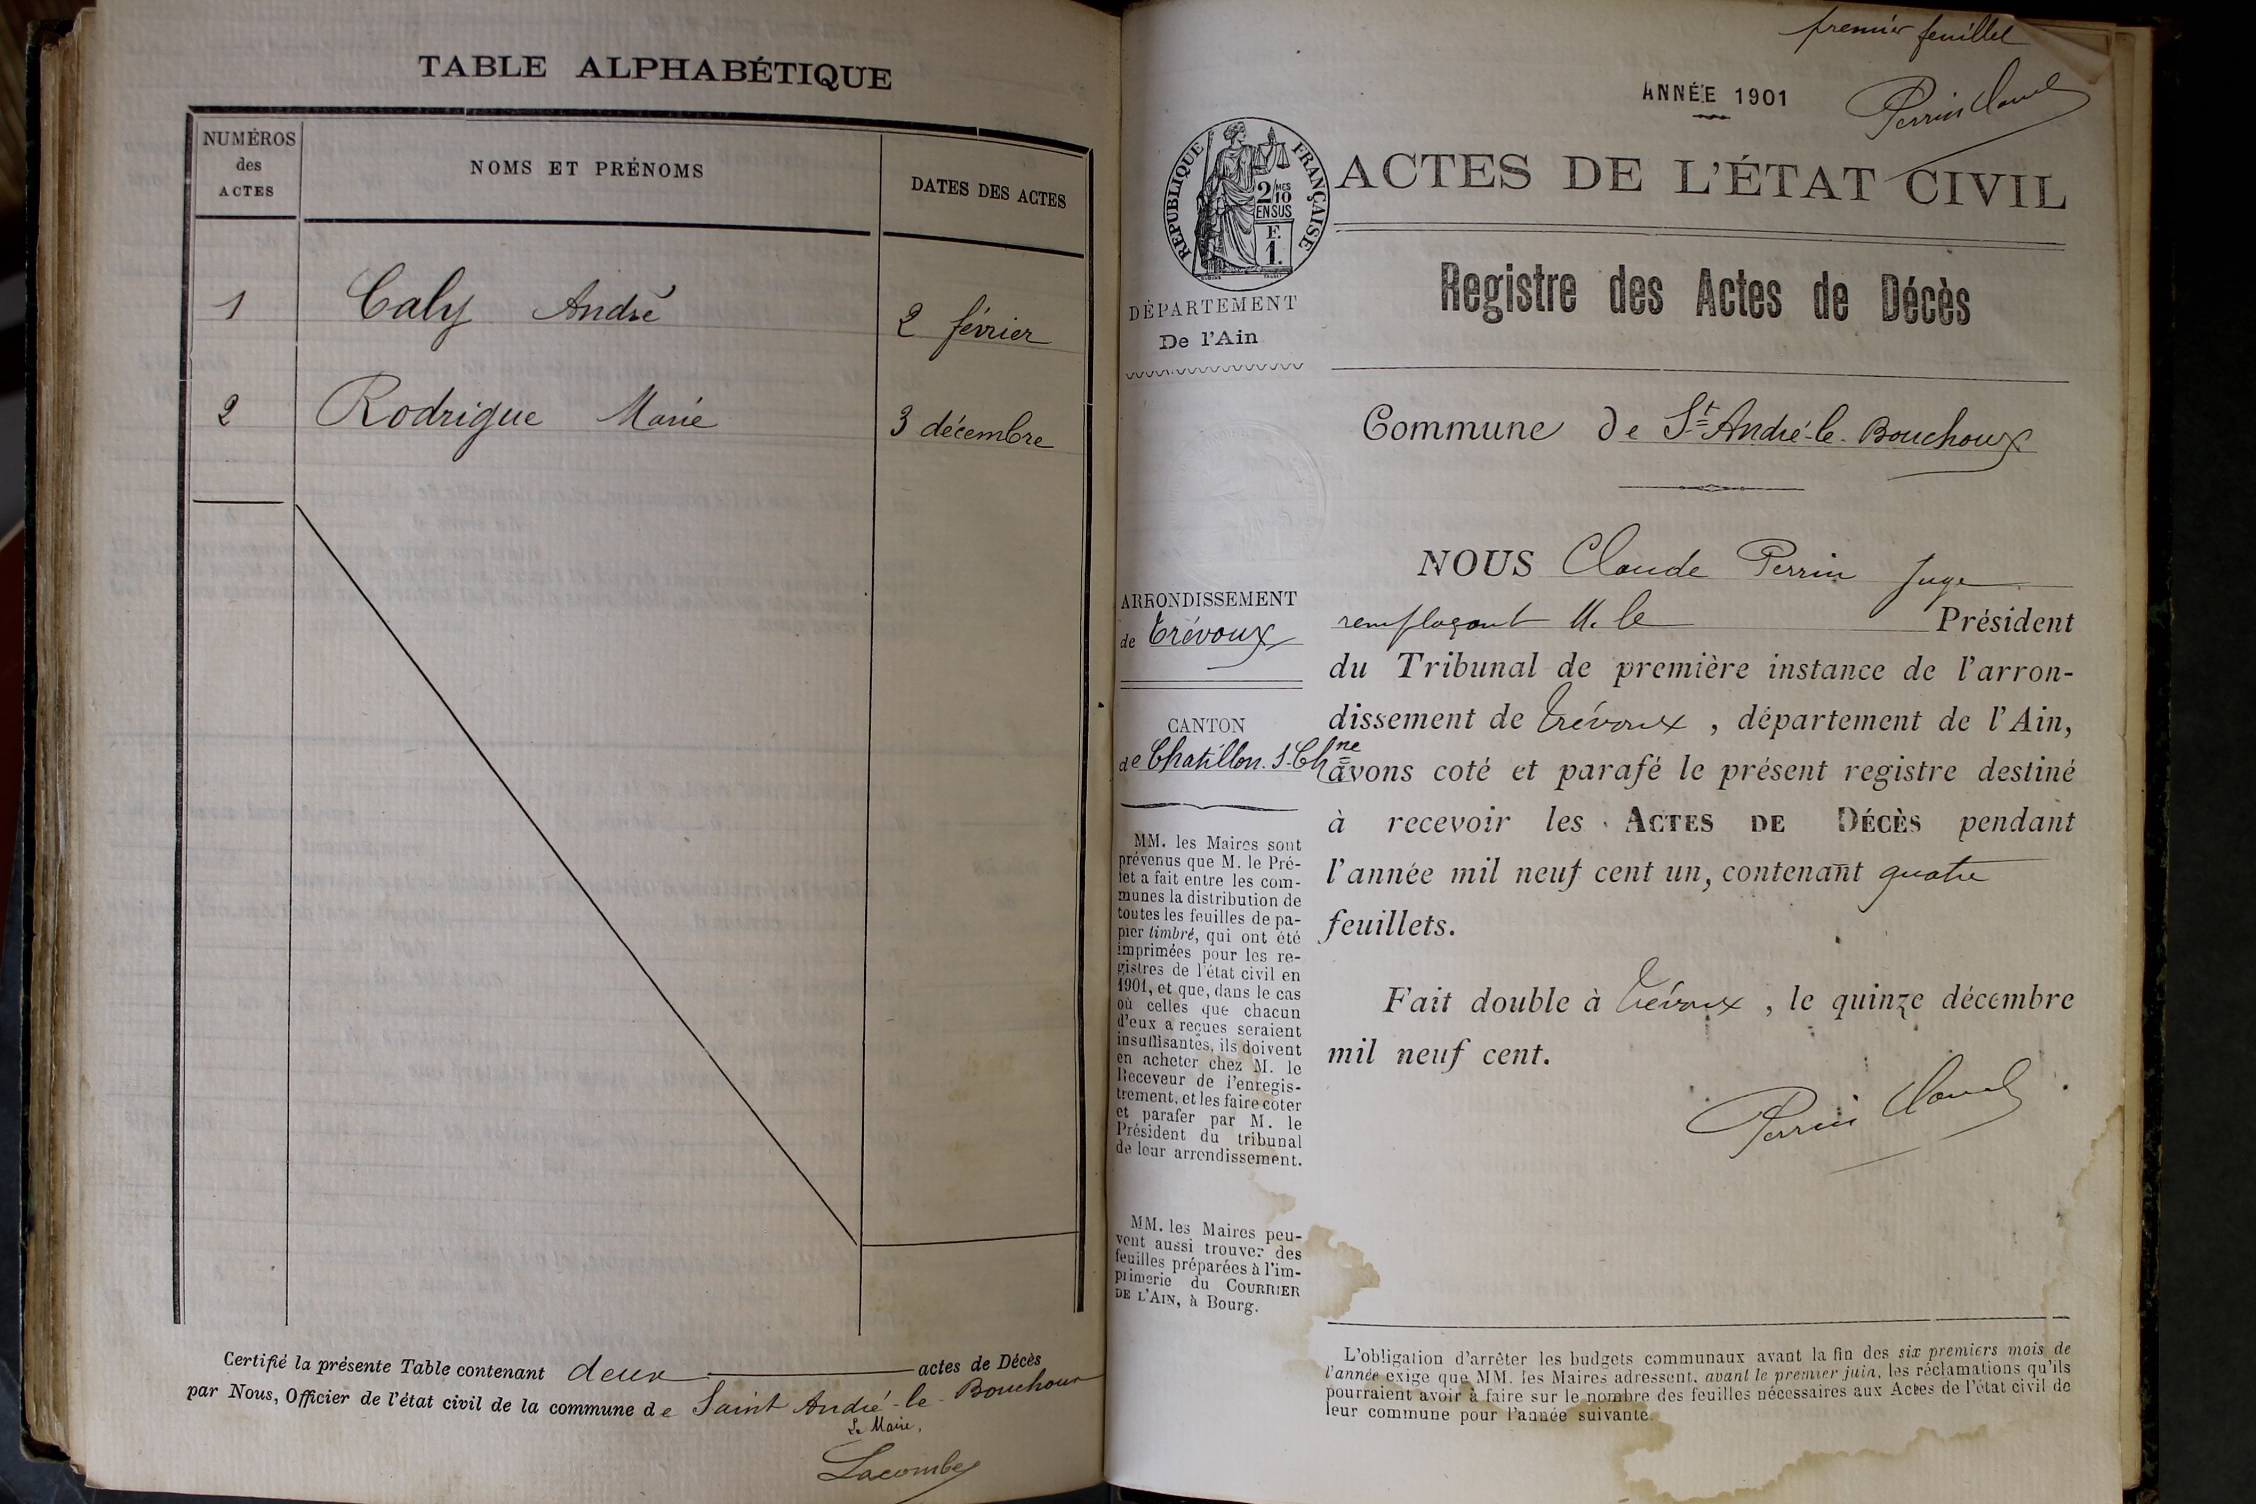 TABLE ALPHABÉTIQUE
NUMÉROS
des
ACTES
NOMS ET PRÉNOMS
DATES DES ACTES
1 Caly André 2 février
2 Rodrigue Marie 3 décembre
Certifié la présente Table contenant deux actes de Décès
par Nous, Officier de l'état civil de la commune de Saint André-le-Bouchoux
Le Maire,
Lacombe
premier feuillet
ANNÉE 1901
Perrin Claude
RÉPUBLIQUE FRANÇAISE
2/10
MES
EN SUS
F.
1.
ACTES DE L'ÉTAT CIVIL
DÉPARTEMENT
De l'Ain
Registre des Actes de Décès
Commune de St André-le-Bouchoux
ARRONDISSEMENT
de Trévoux
CANTON
de Chatillon-s-Chne
MM. les Maires sont
prévenus que M. le Pré-
fet a fait entre les com-
munes la distribution de
toutes les feuilles de pa-
pier timbré, qui ont été
imprimées pour les re-
gistres de l'état civil en
1901, et que, dans le cas
où celles que chacun
d'eux a reçues seraient
insuffisantes, ils doivent
en acheter chez M. le
Receveur de l'enregis-
trement, et les faire coter
et parafer par M. le
Président du tribunal
de leur arrondissement.
MM. les Maires peu-
vent aussi trouver des
feuilles préparées à l'im-
primerie du COURRIER
DE L'AIN, à Bourg.
NOUS Claude Perrin Juge
remplaçant M. le Président
du Tribunal de première instance de l'arron-
dissement de Trévoux, département de l'Ain,
avons coté et parafé le présent registre destiné
à recevoir les ACTES DE DÉCÈS pendant
l'année mil neuf cent un, contenant quatre
feuillets.
Fait double à Trévoux, le quinze décembre
mil neuf cent.
Perrin Claude
L'obligation d'arrêter les budgets communaux avant la fin des six premiers mois de
l'année exige que MM. les Maires adressent, avant le premier juin, les réclamations qu'ils
pourraient avoir à faire sur le nombre des feuilles nécessaires aux Actes de l'état civil de
leur commune pour l'année suivante.